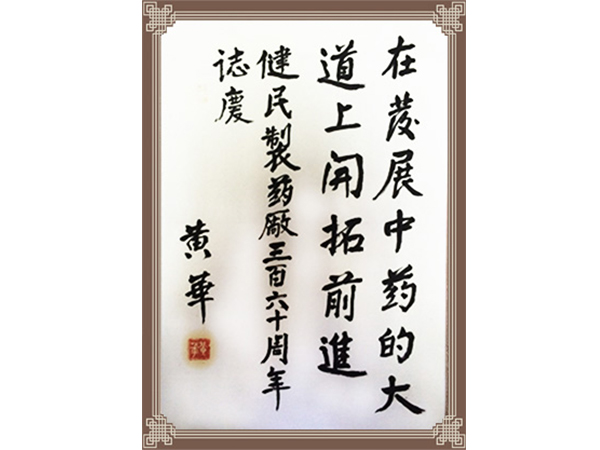 在发展中药的大
道上开拓前進
健民製药廠三百六十周年
誌慶
黄華